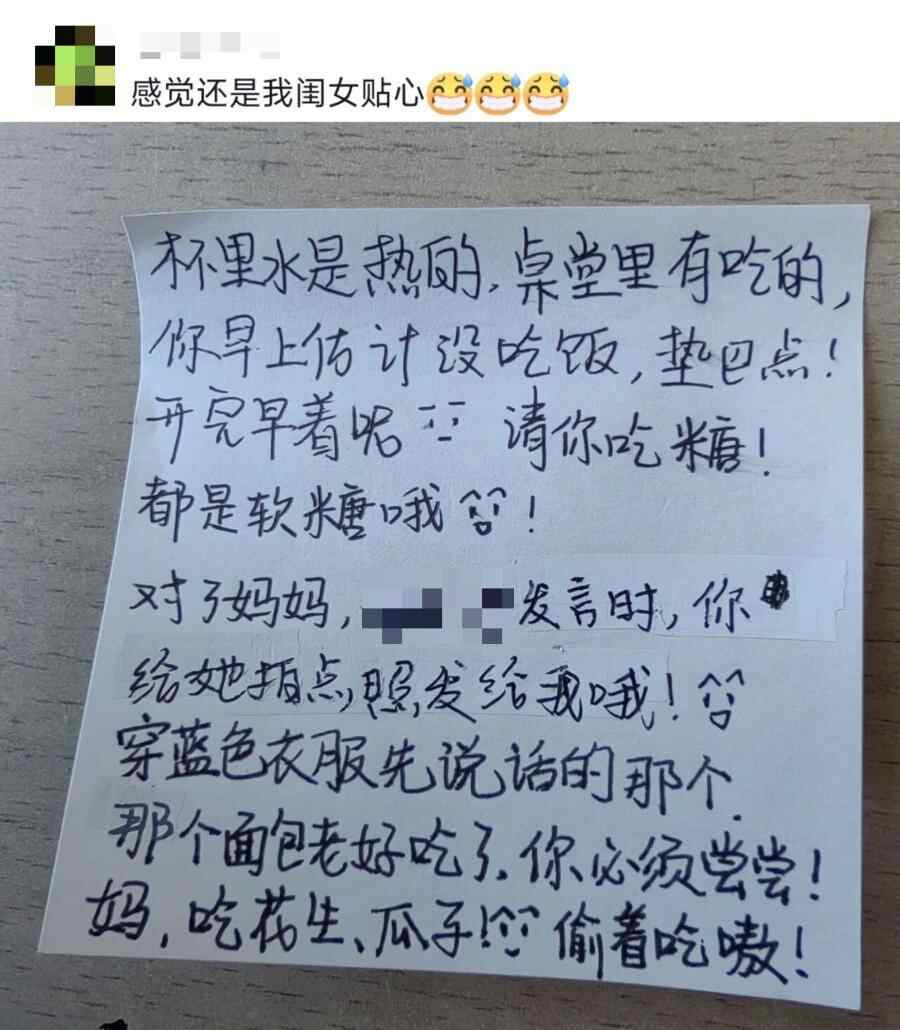 感觉还是我闺女贴心😅😅😅
杯里水是热的，桌堂里有吃的，
你早上估计没吃饭，垫巴点！
开完早着呢 请你吃糖！
都是软糖哦！
对了妈妈， 发言时，你
给她拍点照发给我哦！
穿蓝色衣服先说话的那个.
那个面包老好吃了.你必须尝尝！
妈，吃花生、瓜子！偷着吃嗷！